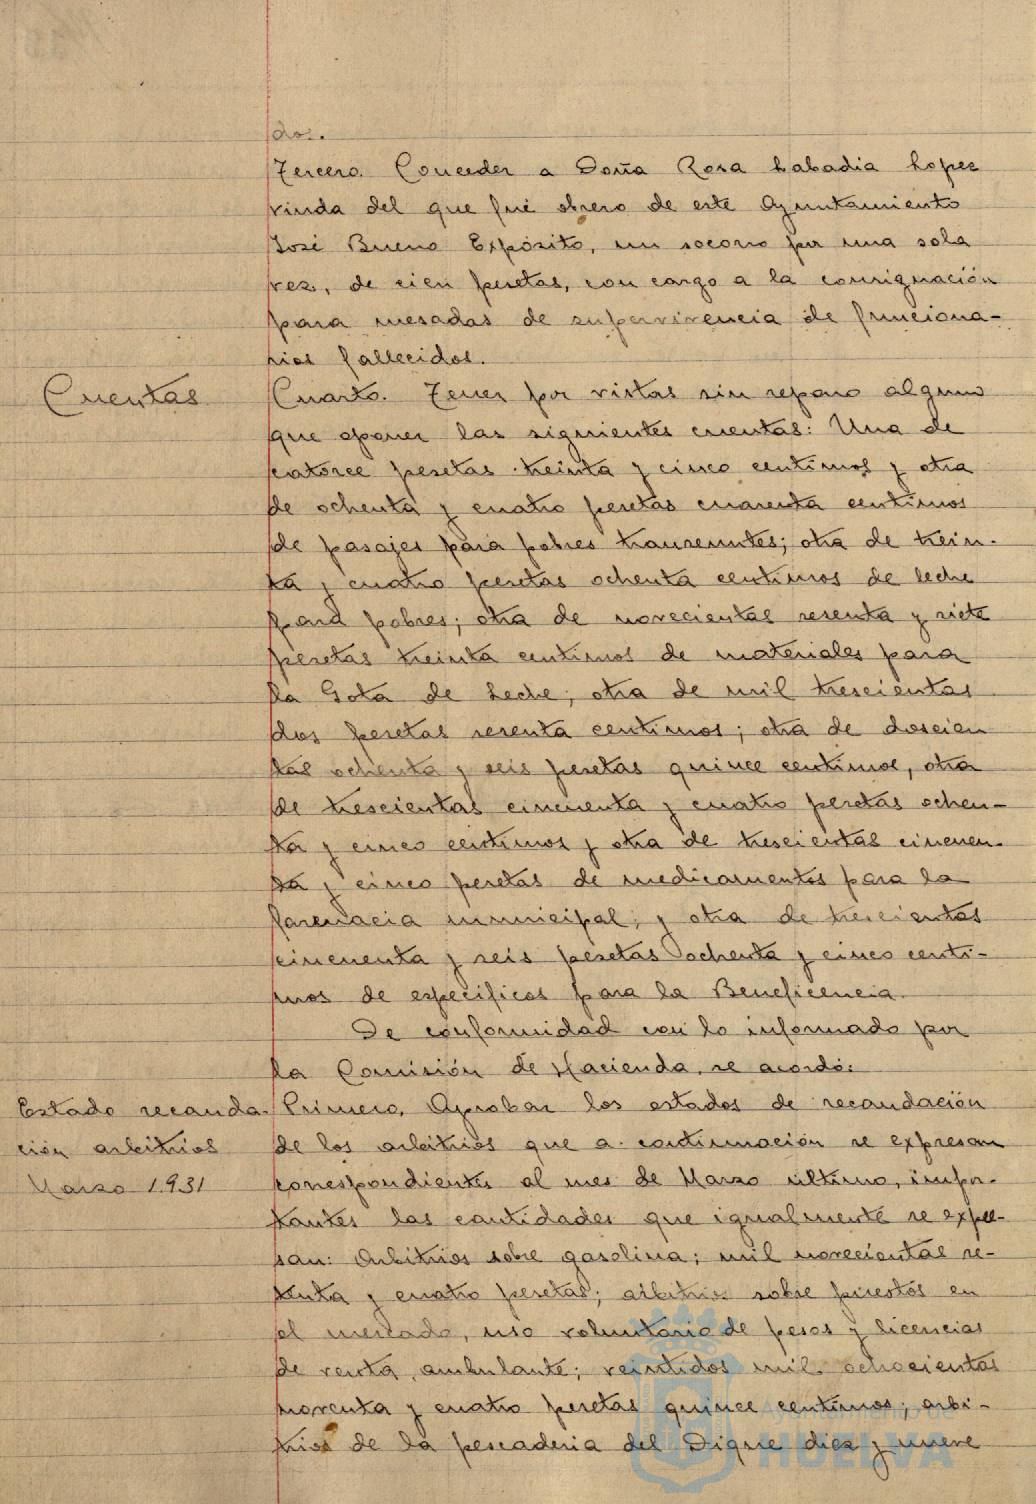 dos.
Tercero. Conceder a Doña Rosa Labadia Lopez
viuda del que fué obrero de este Ayuntamiento
José Bueno Expósito, un socorro por una sola
vez, de cien pesetas, con cargo a la consignación
para mesadas de supervivencia de funciona-
rios fallecidos.
Cuentas
Cuarto. Tener por vistas sin reparo alguno
que oponer las siguientes cuentas: Una de
catorce pesetas treinta y cinco centimos y otra
de ochenta y cuatro pesetas cuarenta centimos
de pasajes para pobres transeuntes; otra de trein-
ta y cuatro pesetas ochenta centimos de leche
para pobres; otra de novecientas sesenta y siete
pesetas treinta centimos de materiales para
la Gota de Leche; otra de mil trescientas
dos pesetas sesenta centimos; otra de doscien
tas ochenta y seis pesetas quince centimos, otra
de trescientas cincuenta y cuatro pesetas ochen-
ta y cinco centimos y otra de trescientas cincuen-
ta y cinco pesetas de medicamentos para la
farmacia municipal; y otra de trescientas
cincuenta y seis pesetas ochenta y cinco centi-
mos de especificos para la Beneficencia.
De conformidad con lo informado por
la Comisión de Hacienda, se acordó:
Estado recauda-
ción arbitrios
Marzo 1.931
Primero. Aprobar los estados de recaudación
de los arbitrios que a continuación se expresan
correspondientes al mes de Marzo ultimo, impor-
tantes las cantidades que igualmente se expre-
san: Arbitrios sobre gasolina; mil novecientas se-
tenta y cuatro pesetas; arbitrios sobre puestos en
el mercado, uso voluntario de pesos y licencias
de venta ambulante; veintidos mil ochocientas
noventa y cuatro pesetas quince centimos; arbi-
trios de la pescaderia del Dique diez y nueve
Ayuntamiento de
HUELVA